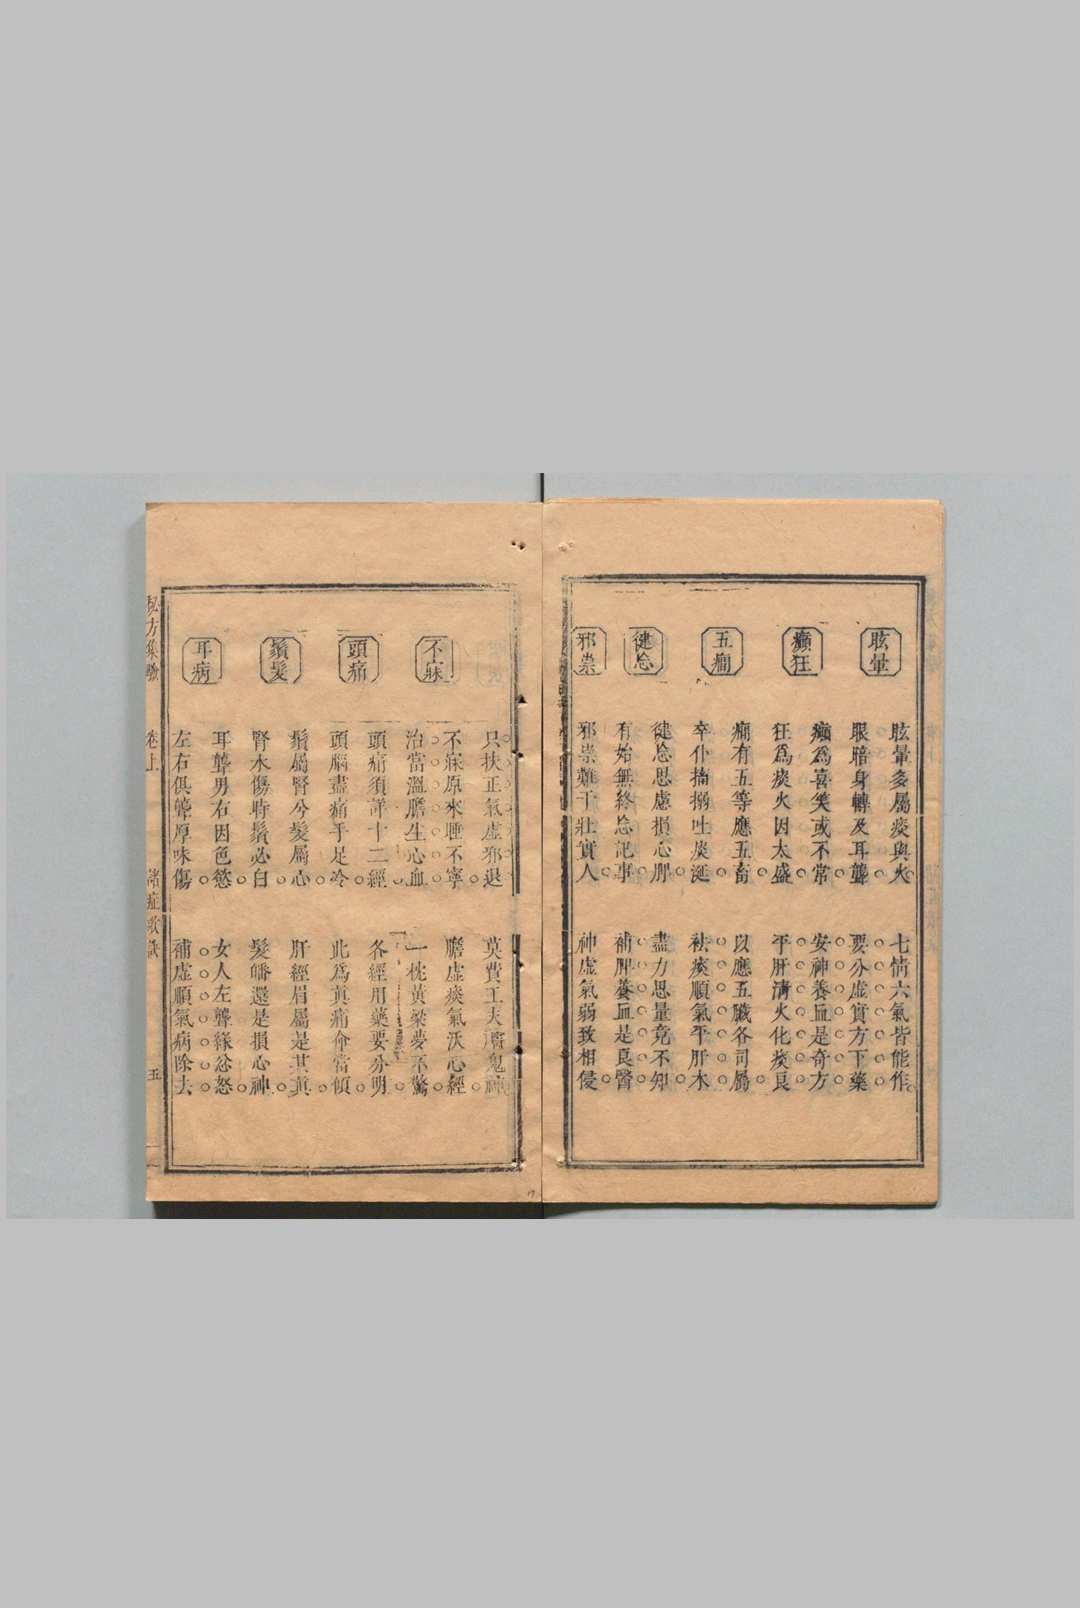 眩暈
眩暈多屬痰與火　七情六氣皆能作
眼暗身轉及耳聾　要分虛實方下藥
癲狂
癲為喜笑或不常　安神養血是奇方
狂為痰火因太盛　平肝淸火化痰良
五癇
癇有五等應五畜　以應五臟各司屬
卒仆搐搦吐痰涎　袪痰順氣平肝木
健忘
健忘思慮損心脾　盡力思量竟不知
有始無終忘記事　補脾養血是良醫
邪祟
邪祟難干壯實人　神虛氣弱致相侵
只扶正氣虛邪退　莫費工夫鬼神
不寐
不寐原來睡不寧　膽虛痰氣沃心經
治當溫膽生心血　一枕黃粱夢不驚
頭痛
頭痛須詳十二經　各經用藥要分明
頭腦盡痛手足冷　此為真痛命當傾
鬚髮
鬚屬腎兮髮屬心　肝經眉屬是其真
腎水傷時鬚必白　髮皤還是損心神
耳病
耳聾男右因色慾　女人左聾緣忿怒
左右俱聾厚味傷　補虛順氣病除去
秘方集驗　卷上　諸症歌訣　五